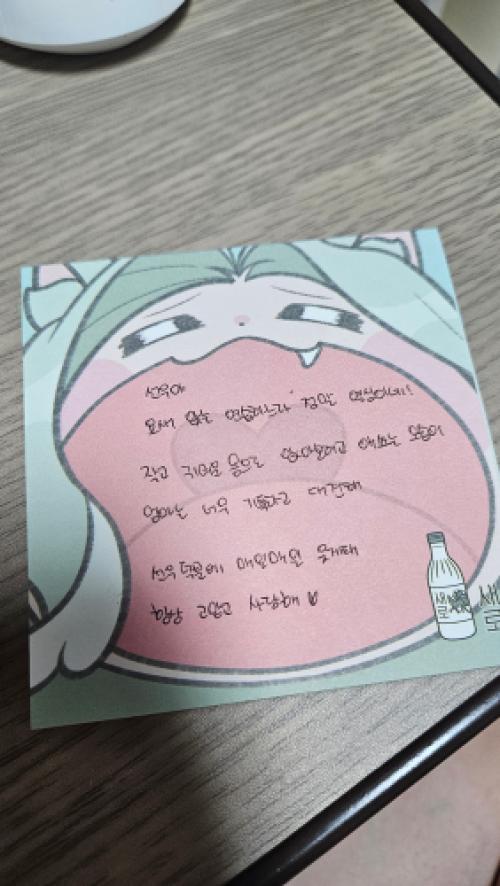 선우야
요새 걷는 연습하느라 정말 열심이네!
작고 귀여운 몸으로 일어나려고 애쓰는 모습이
엄마는 너무 기특하고 대견해
선우 덕분에 매일매일 웃게돼
항상 고맙고 사랑해♡
새로
새로